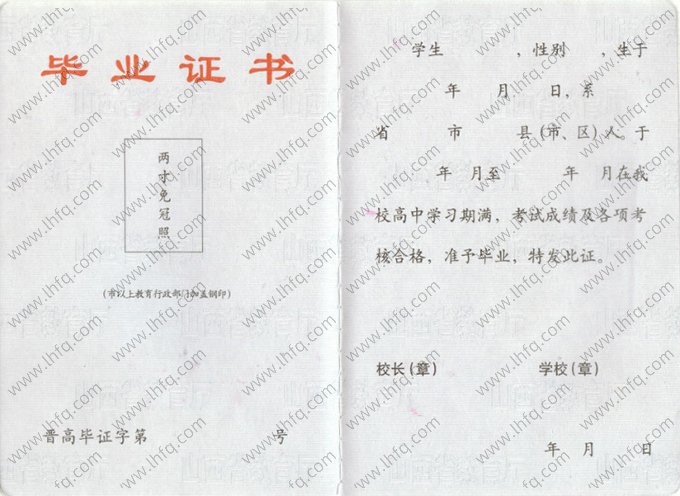 毕业证书
两寸免冠照
(市以上教育行政部门加盖钢印)
晋高毕证字第 号
学生 ，性别 ，生于
年 月 日，系
省 市 县(市、区)人。于
年 月至 年 月在我
校高中学习期满，考试成绩及各项考
核合格，准予毕业，特发此证。
校长(章) 学校(章)
年 月 日
www.lhfq.com